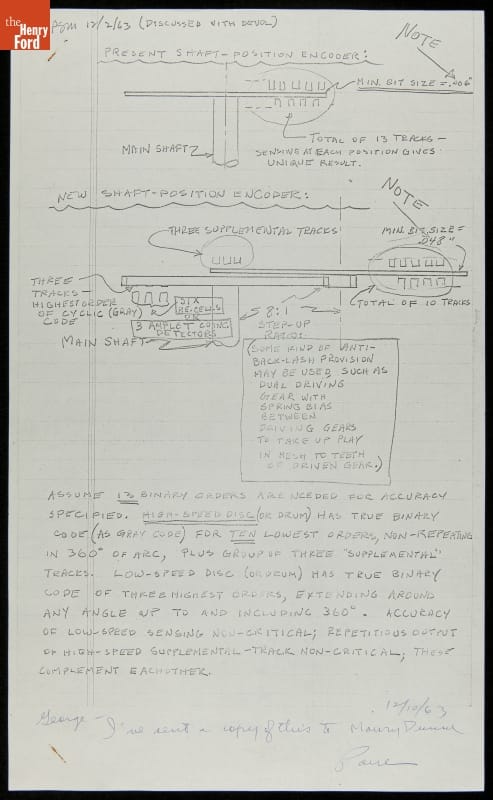 the
Henry
Ford
PSM 12/2/63 (DISCUSSED WITH DEVOL)
NOTE
PRESENT SHAFT-POSITION ENCODER:
MIN. BIT SIZE = .006"
TOTAL OF 13 TRACKS —
SENSING AT EACH POSITION GIVES
UNIQUE RESULT.
MAIN SHAFT
NEW SHAFT-POSITION ENCODER:
NOTE
THREE SUPPLEMENTAL TRACKS
MIN. BIT SIZE =
.048"
THREE
TRACKS -
HIGHEST ORDER
OF CYCLIC (GRAY)
CODE
SIX
OR
3 DETECTORS
MAIN SHAFT
TOTAL OF 10 TRACKS
8:1
STEP-UP
RATIO:
(SOME KIND OF ANTI-
BACK-LASH PROVISION
MAY BE USED, SUCH AS
DUAL DRIVING
GEAR WITH
SPRING BIAS
BETWEEN
DRIVING GEARS
TO TAKE UP PLAY
IN MESH TO TEETH
OF DRIVEN GEAR.)
ASSUME 13 BINARY ORDERS ARE NEEDED FOR ACCURACY
SPECIFIED. HIGH-SPEED DISC (OR DRUM) HAS TRUE BINARY
CODE (AS GRAY CODE) FOR TEN LOWEST ORDERS, NON-REPEATING
IN 360° OF ARC, PLUS GROUP OF THREE "SUPPLEMENTAL"
TRACKS. LOW-SPEED DISC (OR DRUM) HAS TRUE BINARY
CODE OF THREE HIGHEST ORDERS, EXTENDING AROUND
ANY ANGLE UP TO AND INCLUDING 360°. ACCURACY
OF LOW-SPEED SENSING NON-CRITICAL; REPETITIOUS OUTPUT
OF HIGH-SPEED SUPPLEMENTAL-TRACK NON-CRITICAL; THESE
COMPLEMENT EACHOTHER.
12/10/63
George —
I've sent a copy of this to Maury